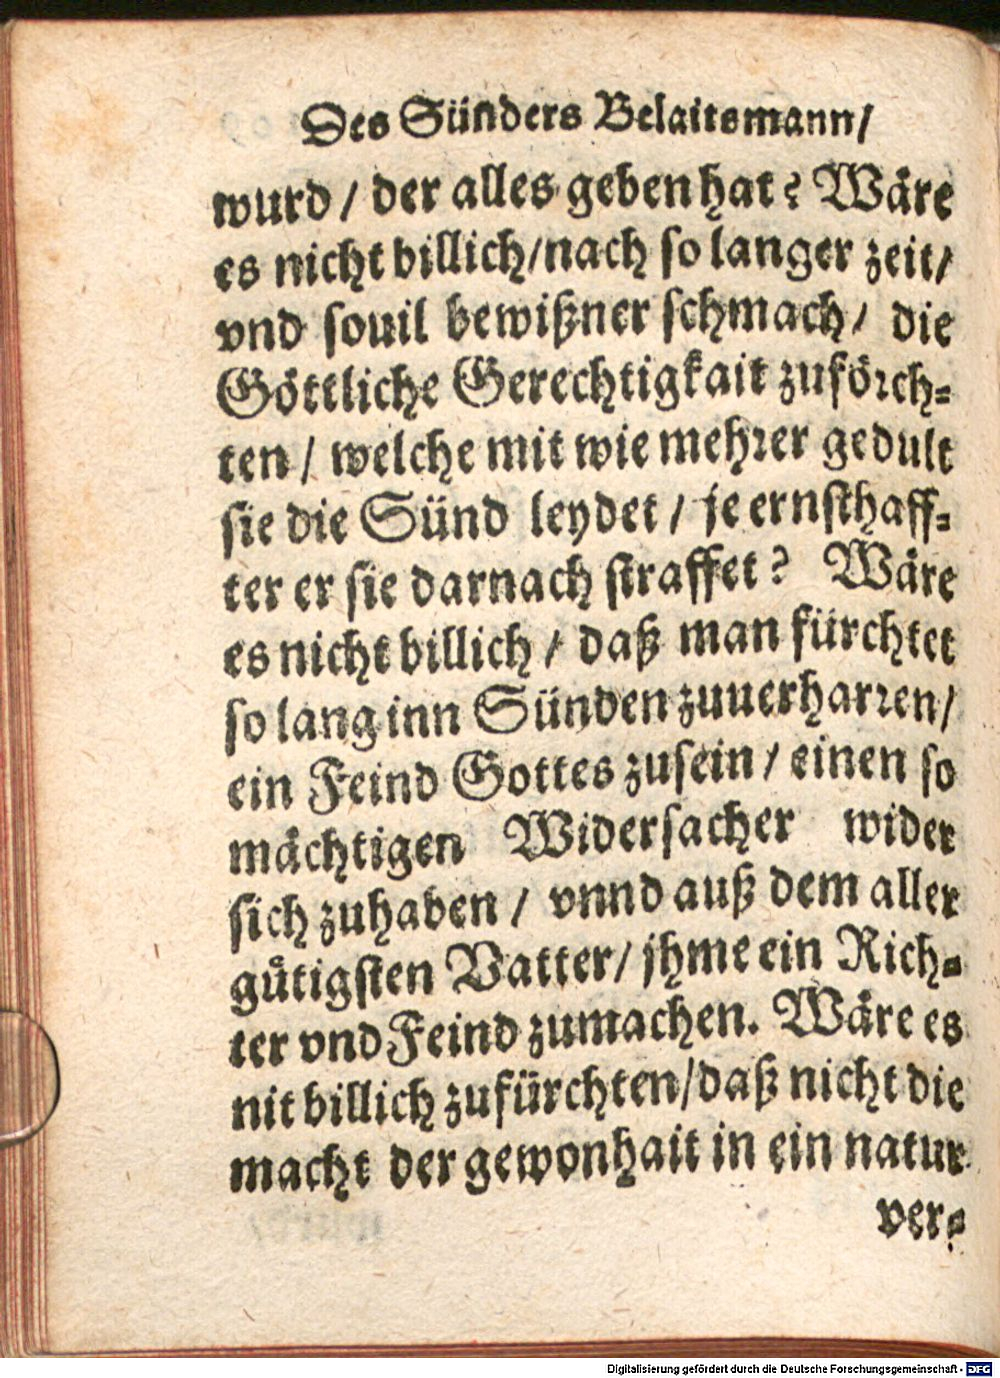 Des Sünders Belaitsmann/
wurd / der alles geben hat? Wäre
es nicht billich/nach so langer zeit/
vnd souil bewißner schmach / die
Göttliche Gerechtigkait zuförch-
ten / welche mit wie mehrer gedult
sie die Sünd leydet / je ernsthaff-
ter er sie darnach straffet? Wäre
es nicht billich / daß man fürchtet
so lang inn Sünden zuuerharren/
ein Feind Gottes zusein / einen so
mächtigen Widersacher wider
sich zuhaben / vnnd auß dem aller
gütigsten Vatter/ jhme ein Rich-
ter vnd Feind zumachen. Wäre es
nit billich zufürchten/daß nicht die
macht der gewonhait in ein natur
ver-
Digitalisierung gefördert durch die Deutsche Forschungsgemeinschaft - DFG